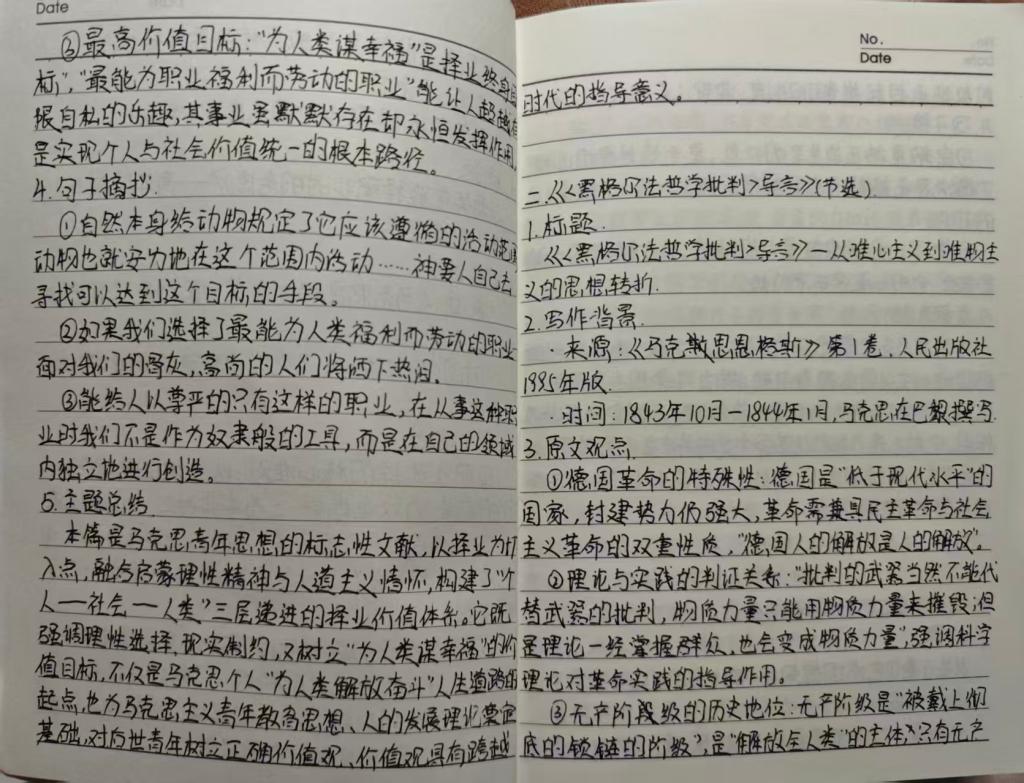 Date
③最高价值目标:“为人类谋幸福”是择业终身目
标”,“最能为职业福利而劳动的职业”能让人超越有
限自私的乐趣,其事业虽默默存在却永恒发挥作用,
是实现个人与社会价值统一的根本路径。
4.句子摘抄.
①自然本身给动物规定了它应该遵循的活动范围
动物也就安分地在这个范围内活动……神要人自己去
寻找可以达到这个目标的手段。
②如果我们选择了最能为人类福利而劳动的职业
面对我们的骨灰,高尚的人们将洒下热泪。
③能给人以尊严的只有这样的职业,在从事这种职
业时我们不是作为奴隶般的工具,而是在自己的领域
内独立地进行创造。
5.主题总结.
本篇是马克思青年思想的标志性文献,以择业为切
入点,融合启蒙理性精神与人道主义情怀,构建了“个
人—社会—人类”三层递进的择业价值体系。它既
强调理性选择、现实制约,又树立“为人类谋幸福”的价
值目标,不仅是马克思个人“为人类解放奋斗”人生道路的
起点,也为马克思主义青年教育思想、人的发展理论奠定
基础,对后世青年树立正确价值观、价值观具有跨越
No.
Date
时代的指导意义。
二.《<黑格尔法哲学批判>导言》(节选).
1.标题.
《<黑格尔法哲学批判>导言》—从唯心主义到唯物主
义的思想转折.
2.写作背景.
·来源:《马克思恩格斯》第1卷,人民出版社
1995年版.
·时间:1843年10月—1844年1月,马克思在巴黎撰写.
3.原文观点.
①德国革命的特殊性:德国是“低于现代水平”的
国家,封建势力仍强大,革命需兼具民主革命与社会
主义革命的双重性质,“德国人的解放是人的解放”。
②理论与实践的判证关系:“批判的武器当然不能代
替武器的批判,物质力量只能用物质力量来摧毁;但
是理论一经掌握群众,也会变成物质力量”,强调科学
理论对革命实践的指导作用。
③无产阶段级的历史地位:无产阶级是“被戴上彻
底的锁链的阶级”,是“解放全人类”的主体,“只有无产